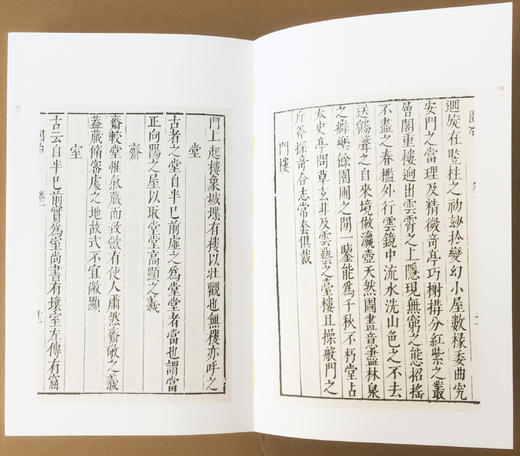 園冶
迴旋在竪柱之初妙於變幻小屋數椽委曲究
安門之當理及精微奇亭巧榭搆分紅紫之叢
層閣重樓迥出雲霄之上隱現無窮之態招搖
不盡之春檻外行雲鏡中流水洗山色之不去
送鶴聲之自來境倣瀛壺天然圖畫意盡林泉
之癖樂餘園圃之間一鑒能爲千秋不朽堂占
太史亭問草玄非及雲藝之臺樓且操般門之
斤斧探奇合志常套俱裁
門樓
門上起樓象城堞有樓以壯觀也無樓亦呼之
堂
古者之堂自半已前虛之爲堂堂者當也謂當
正向陽之屋以取堂堂高顯之義
齋
齋較堂惟氣藏而致歛有使人肅然齋敬之義
蓋藏脩密處之地故式不宜敞顯
室
古云自半已前實爲室尚書有壤室左傳有窟
園冶